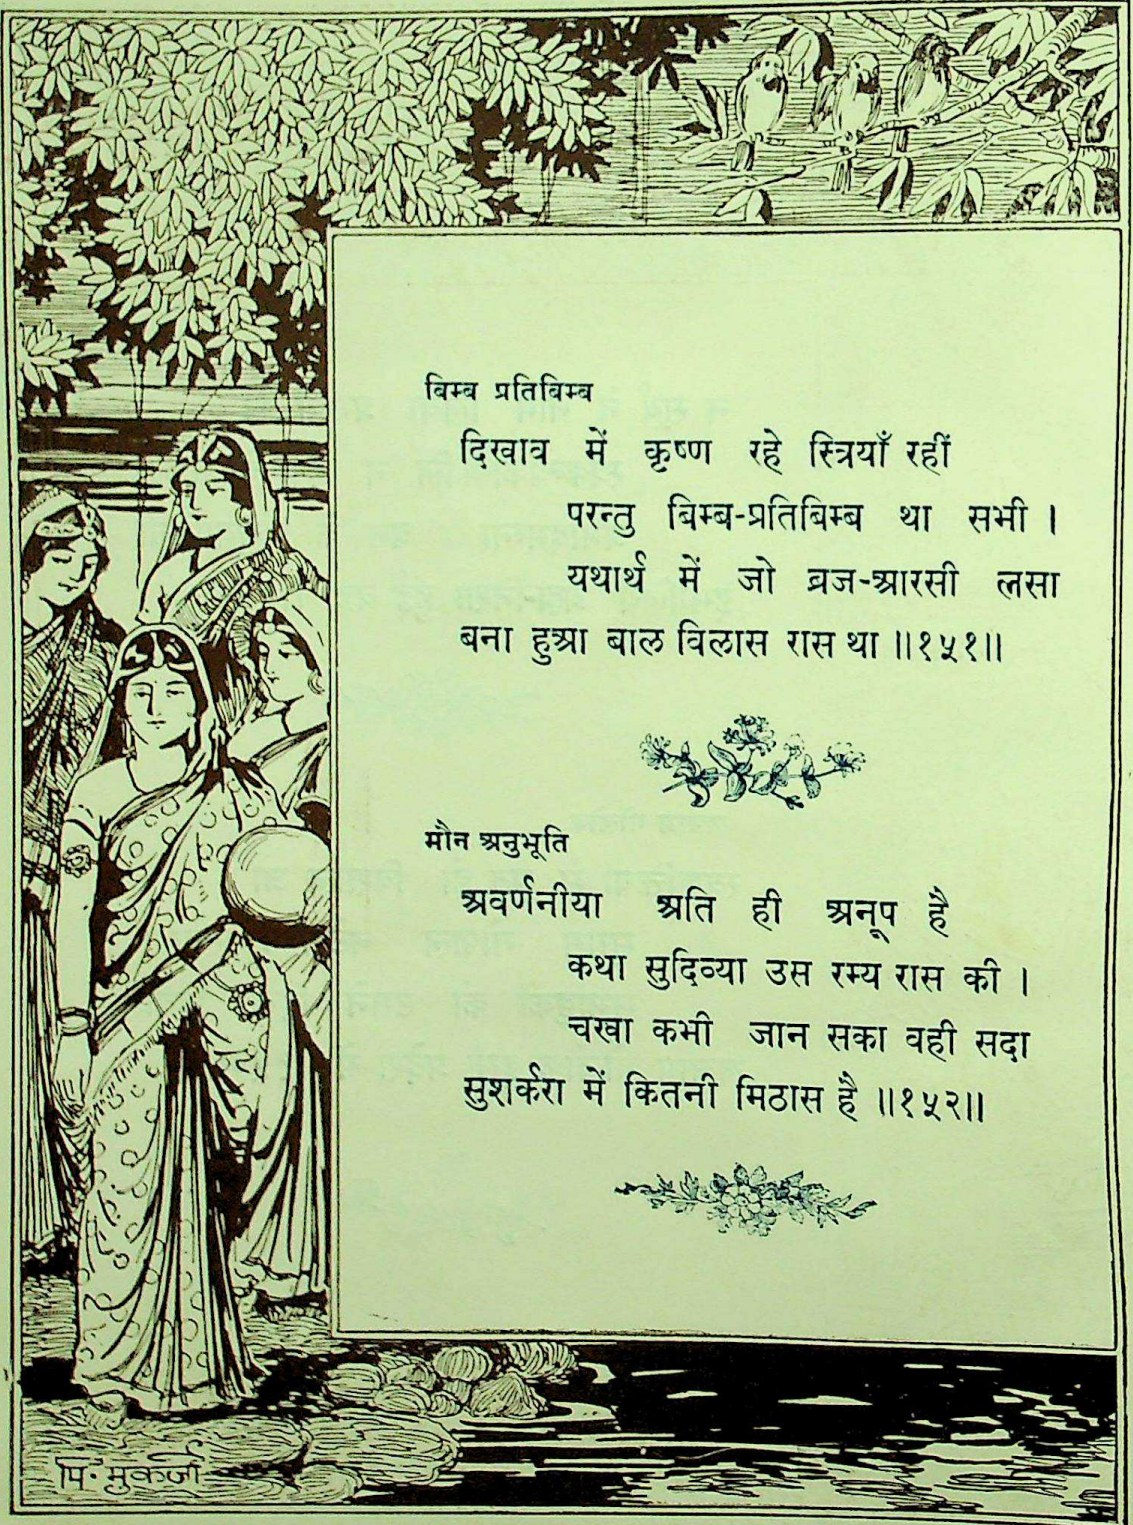 बिम्ब प्रतिबिम्ब
दिखाव में कृष्ण रहे स्त्रियाँ रहीं
परन्तु बिम्ब-प्रतिबिम्ब था सभी ।
यथार्थ में जो व्रज-आरसी लसा
बना हुआ बाल विलास रास था ॥१५१॥
मौन अनुभूति
अवर्णनीया अति ही अनूप है
कथा सुदिव्या उस रम्य रास की ।
चखा कभी जान सका वही सदा
सुशर्करा में कितनी मिठास है ॥१५२॥
पि. मुकर्जी